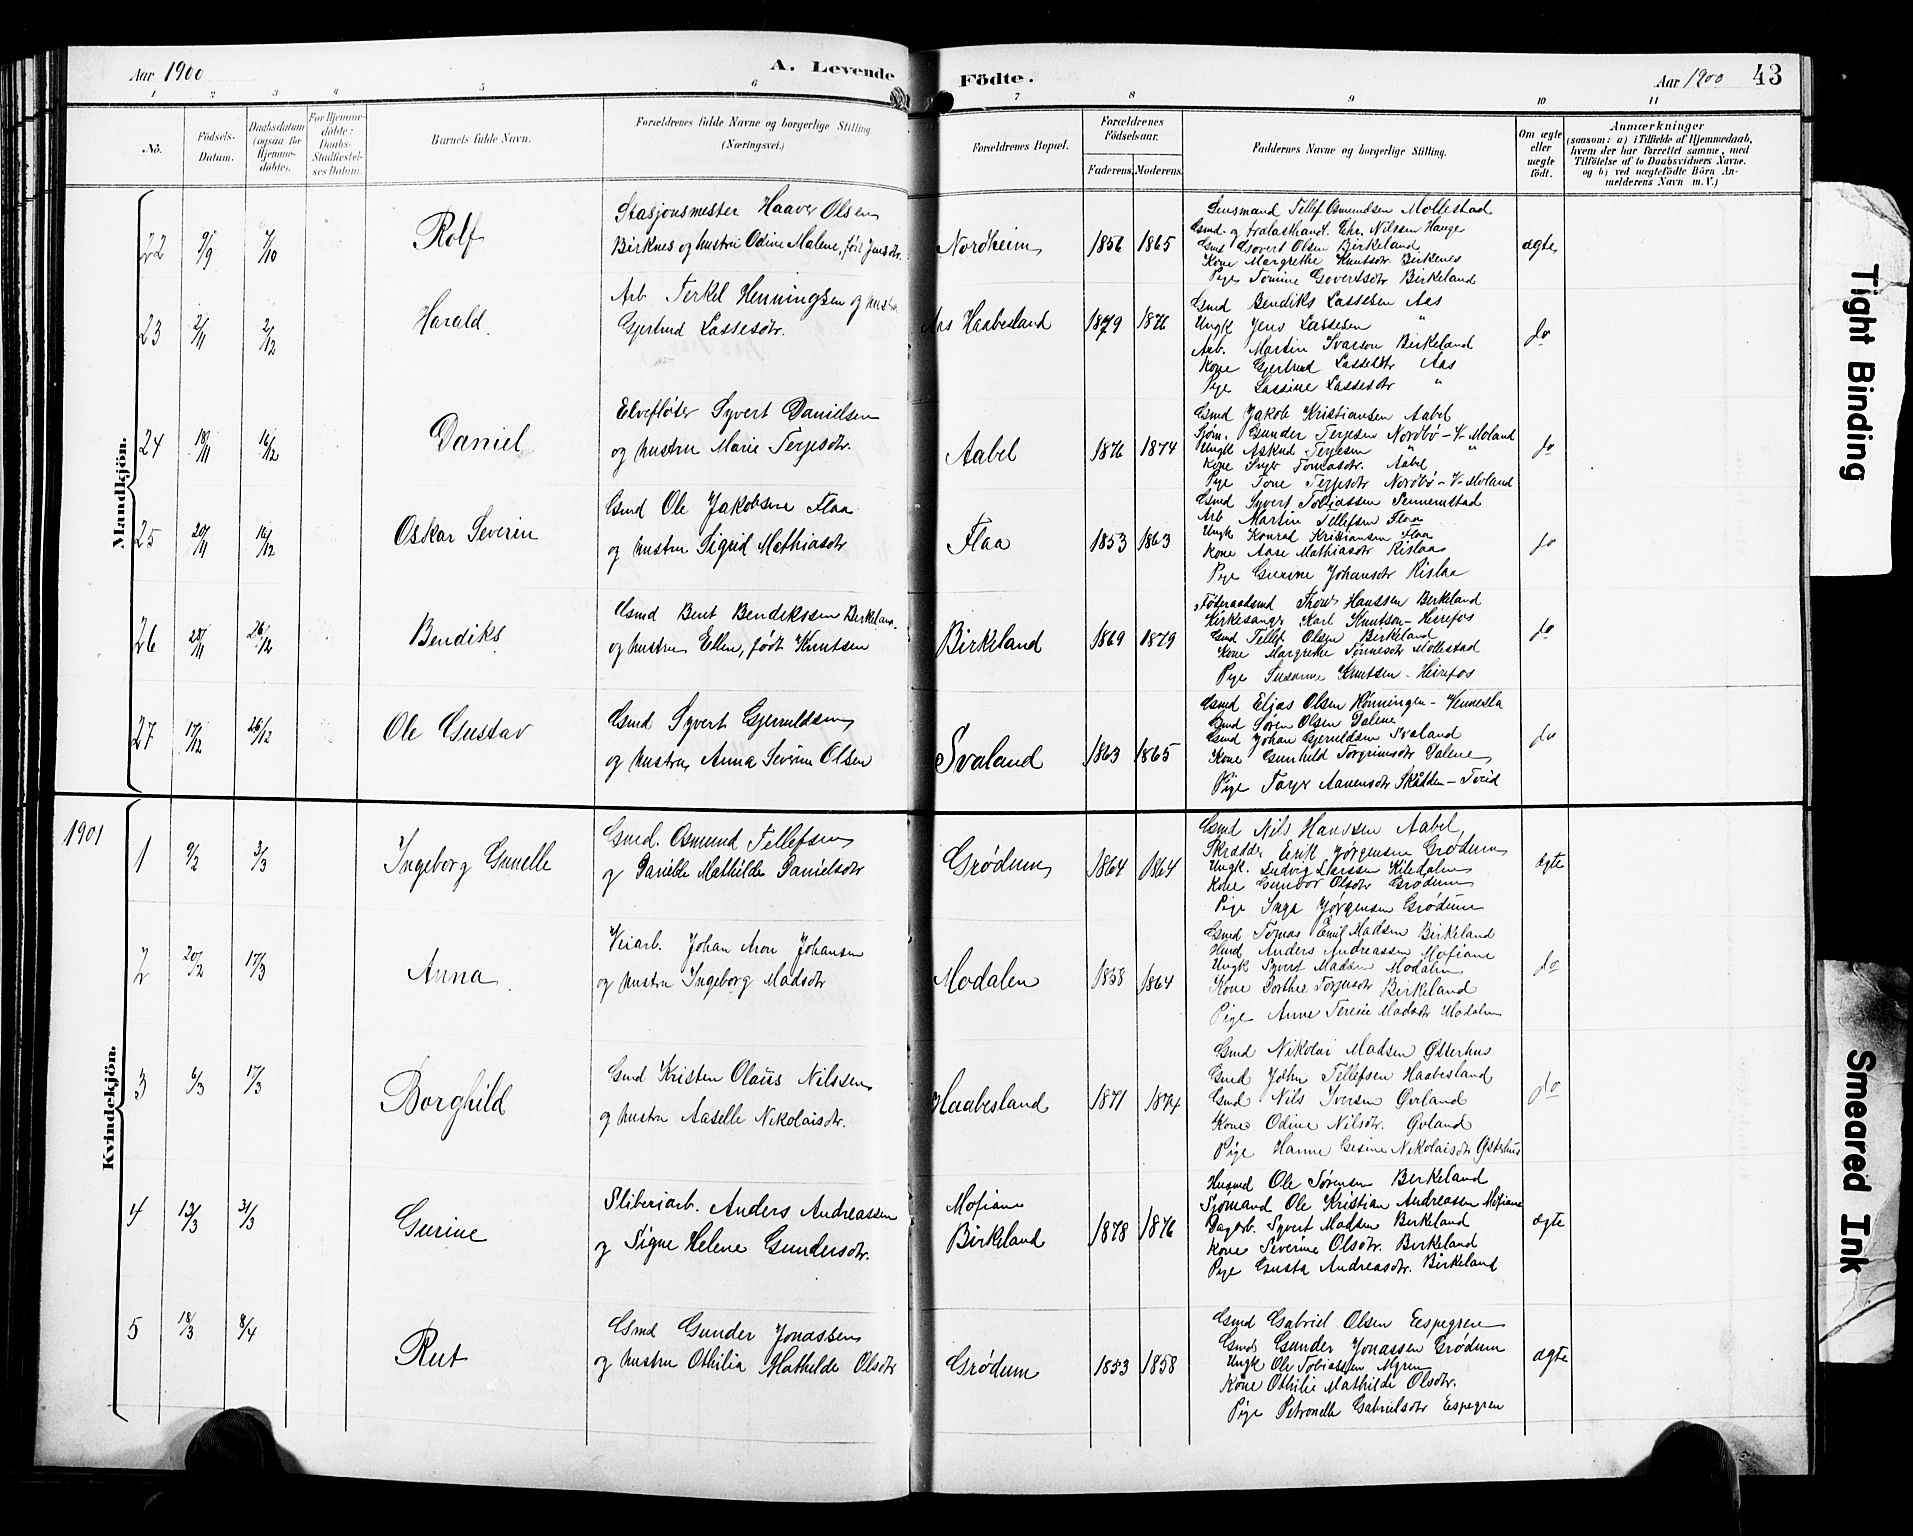 Aar 1900
A. Levende
Födte.
Aar 1900 43
1 2 3 4 5 6 7 8 9 10 11
No.
Födsels-Datum.
Daabsdatum (ogsaa for Hjemmedöbte).
For Hjemmedöbte: Daabs-Stadfæstelses Datum.
Barnets fulde Navn.
Forældrenes fulde Navne og borgerlige Stilling (Næringsvei.)
Forældrenes Bopæl.
Forældrenes Födselsaar.
Faderens. Moderens.
Faddernes Navne og borgerlige Stilling.
Om ægte eller uægte födt.
Anmærkninger
(saasom: a) i Tilfælde af Hjemmedaab, hvem der har forrettet samme, med Tilföielse af to Daabsvidners Navne. og b) ved uægtefödte Börn Anmelderens Navn m. V.)
Mandkjön.
22 9/9 7/10 Rolf
Stasjonsmester Haaver Olsen
Birknes og hustru Odine Malene, født Jensdtr.
Nordheim 1856 1865
Lensmand Tellef Osmundsen Mollestad
Gmd. og trælasthandl. Chr. Nilssen Hauge
Gmd Govert Olsen Birkeland
Kone Margrethe Knutsdtr Birkenes
Pige Tomine Govertsdtr Birkeland
ægte
23 2/11 2/12 Harald
Arb Terkel Henningsen og hustru
Gjertrud Lassesdtr.
Aas Haabesland 1879 1876
Gmd Bendiks Lassesen Aas
Ungk Jens Lassesen "
Arb. Martin Ivarson Birkeland
Kone Gjertrud Lassesdtr Aas
Pige Lassine Lassesdtr "
do
24 18/11 16/12 Daniel
Elvefløter Syvert Danielsen
og hustru Marie Terjesdtr.
Aabel 1876 1874
Gmd Jakob Kristiansen Aabel
Sjøm. Gunder Terjesen Nordbø - V. Moland
Ungk Askud Terjesen " "
Kone Inger Tomasdtr. Aabel
Pige Tone Terjesdtr Nordbø - V. Moland
do
25 20/11 16/12 Oskar Severin
Gmd Ole Jakobsen Flaa
og hustru Sigrid Mathiasdtr
Flaa 1853 1863
Gmd Syvert Tobiassen Sennemstad
Arb Martin Tellefsen Flaa
Ungk Konrad Kristiansen Flaa
Kone Aase Mathiasdtr Rislaa
Pige Gurine Johansdtr Rislaa
do
26 28/11 26/12 Bendiks
Gmd Bent Bendikssen Birkeland
og hustru Ellen, født Knutsen
Birkeland 1869 1879
Føderaadsmd Thor Hanssen Berkeland
Kirkesang. Karl Knutson - Heirefos
Gmd Tellef Olsen Birkeland
Kone Margrethe Tønnesdtr Mollestad
Pige Susanne Knutsen - Heirefos
do
27 17/12 26/12 Ole Gustav
Gmd Syvert Gjeruldsen
og hustru Anna Severine Olsen
Svaland 1863 1865
Gmd Eljas Olsen Hønningen - Vennesla
Gmd Søren Olsen Dalene
Gmd Johan Gjeruldsen Svaland
Kone Gunhild Torgrimsdtr Dalene
Pige Targer Aanensdtr Skådden - Tveid
do
1901
Kvindekjön.
1 9/2 3/3 Ingeborg Gunelle
Gmd. Osmund Tellefsen
og Danielle Mathilde Danielsdtr
Grødum 1864 1864
Gmd Nils Hanssen Aabel
Skrædder Erik Jørgensen Grødum
Ungk. Ludvig Larssen Kiledalen
Kone Gunvor Olsdtr Grødum
Pige Inga Jørgensen Grødum
ægte
2 20/2 17/3 Anna
Veiarb. Johan Aron Johansen
og hustru Ingeborg Madsdtr
Modalen 1858 1864
Gmd Tomas Emil Madsen Birkeland
Husmd Anders Andreassen Mofiane
Ungk Syvert Madsen Modalen
Kone Dorthea Torjusdtr Birkeland
Pige Anne Terene Madsdtr Modalen
do
3 6/3 17/3 Borghild
Gmd Kristen Olaus Nilssen
og hustru Aaselle Nikolaisdtr.
Haabesland 1871 1874
Gmd Nikolai Madsen Østerhus
Gmd John Tellefsen Haabesland
Gmd Nils Iversen Øvland
Kone Odine Nilsdtr. Øvland
Pige Hanne Gesine Nikolaisdtr Østerhus
do
4 13/3 31/3 Gurine
Sliberiarb. Anders Andreassen
og Signe Helene Gundersdtr.
Mofiane
Birkeland 1878 1876
Husmd Ole Sørensen Berkeland
Sjømand Ole Kristian Andreassen Mofiane
Dagarb. Syvert Madsen Berkeland
Kone Severine Olsdtr. Birkeland
Pige Gusta Andreasdtr. Birkeland
ægte
5 18/3 8/4 Rut
Gmd Gunder Jonassen
og hustru Othilia Mathilde Olsdtr
Grødum 1853 1858
Gmd Gabriel Olsen Espegren
Gmd Gunder Jonassen Grødum
Ungk Ole Tobiassen Mgren
Kone Othilie Mathilde Olsdtr.
Pige Petronelle Gabrielsdtr Espegren
ægte
Tight Binding
Smeared Ink